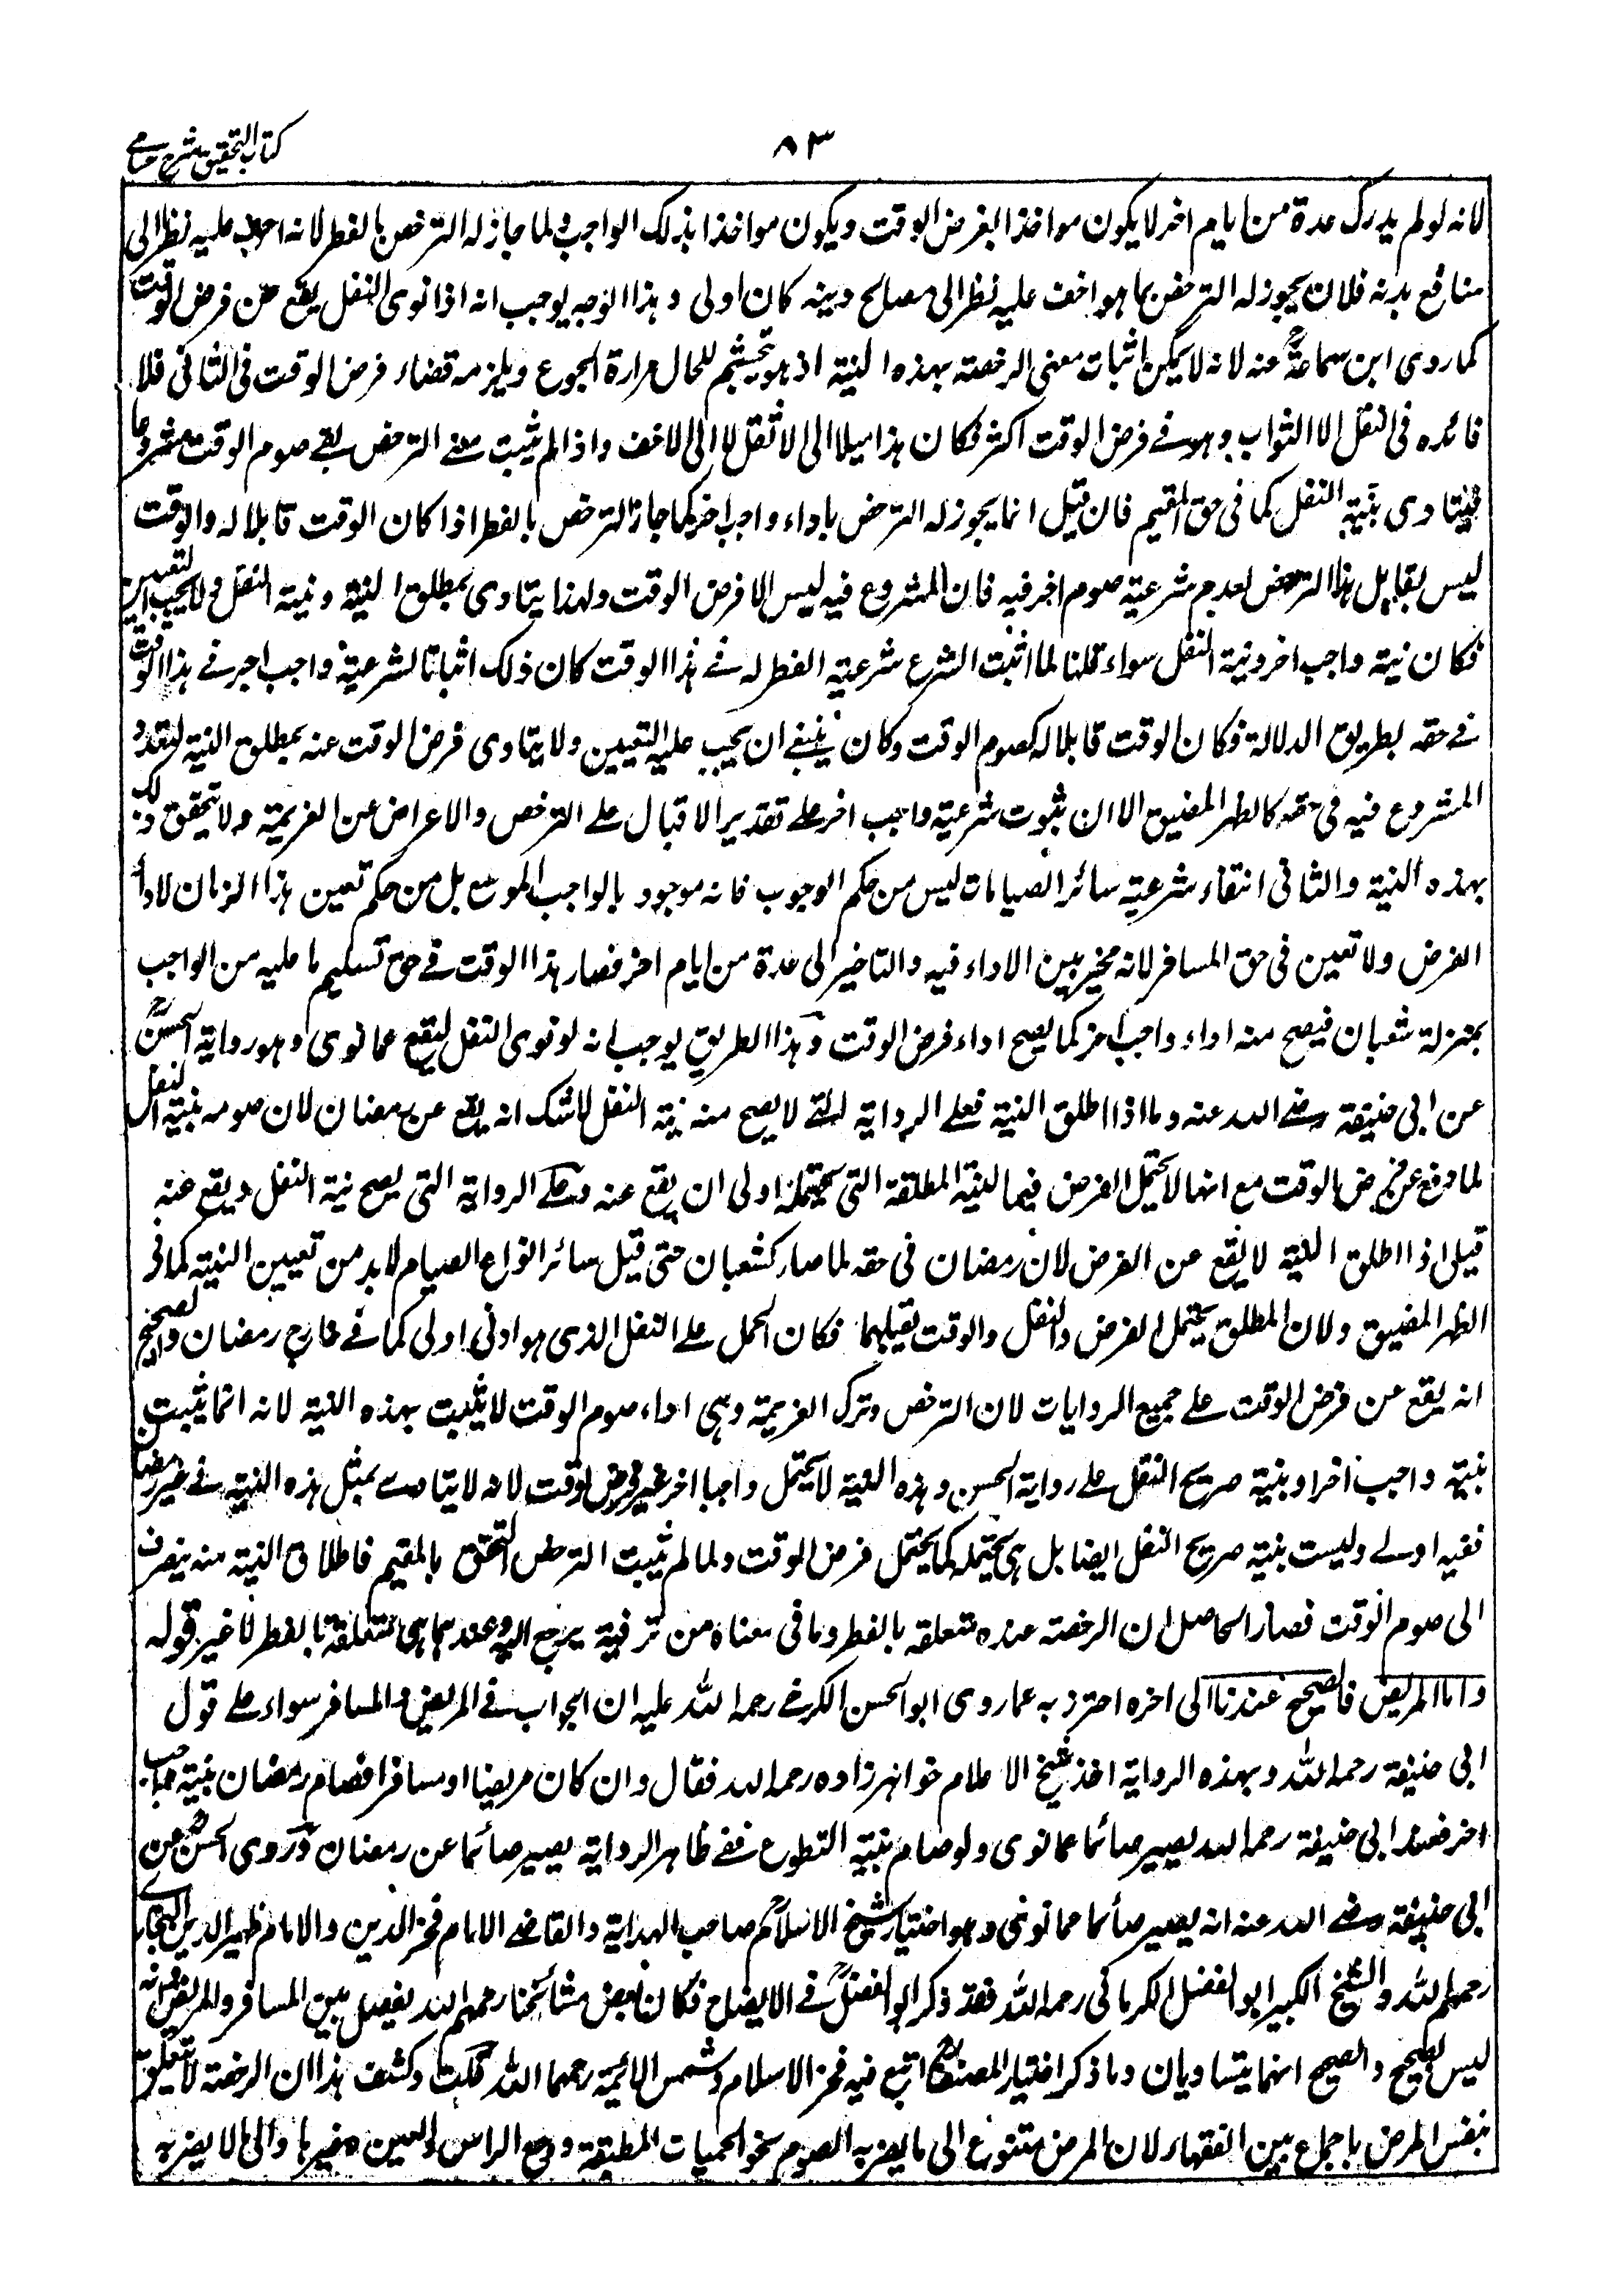 كتاب التحقيق شرح حسامي
٨٣
لانه لو لم يدرك عدة من ايام اخر لا يكون مواخذا بفرض الوقت ويكون مواخذا بذلك الواجب فلما جاز له الترخص بالفطر لانه اخف عليه نظرا الى
منافع بدنه فلان يجوز له الترخص بما هو اخف عليه نظرا الى مصالح دينه كان اولى وهذا الوجه يوجب انه اذا نوى النفل يقع عن فرض الوقت
كما روى ابن سماعة عنه لانه لا يمكن اثبات معنى الرخصة بهذه النية اذ هو تجشم للحال مرارة الجوع ويلزمه قضاء فرض الوقت في الثاني فلا
فائده في النفل الا الثواب وهو في فرض الوقت اكثر فكان هذا ميلا الى الاثقل لا الى الاخف واذا لم يثبت معنى الترخص بقي صوم الوقت مشروعا
فيتادى بنية النفل كما في حق المقيم فان قيل انما يجوز له الترخص باداء واجب اخر كما جاز الترخص بالفطر اذا كان الوقت قابلا له والوقت
ليس بقابل لهذا الترخص لعدم شرعية صوم اخر فيه فان المشروع فيه ليس الا فرض الوقت ولهذا يتادى بمطلق النية ونية النفل ولا يجب التعيين
فكان نية واجب اخر ونية النفل سواء قلنا لما اثبت الشرع شرعية الفطر له في هذا الوقت كان ذلك اثباتا لشرعية واجب اخر في هذا الوقت
في حقه بطريق الدلالة فكان الوقت قابلا له كصوم الوقت وكان ينبغي ان يجب عليه التعيين ولا يتادى فرض الوقت عنه بمطلق النية لتعدد
المشروع فيه في حقه كالظهر المضيق الا ان ثبوت شرعية واجب اخر على تقدير الاقبال على الترخص والاعراض عن العزيمة ولا تحقق ذلك
بهذه النية والثاني انتفاء شرعية سائر الصيامات ليس من حكم الوجوب فانه موجود بالواجب الموسع بل من حكم تعين هذا الزمان لاداء
الفرض ولا تعين في حق المسافر لانه مخير بين الاداء فيه والتاخير الى عدة من ايام اخر فصار هذا الوقت في حق تسليم ما عليه من الواجب
بمنزلة شعبان فيصح منه اداء واجب اخر كما يصح اداء فرض الوقت وهذا الطريق يوجب انه لو نوى النفل ليقع عما نوى وهو رواية الحسن
عن ابي حنيفة رضي الله عنه وما اذا اطلق النية فعلى الرواية التي لا يصح منه نية النفل لا شك انه يقع عن رمضان لان صومه بنية النفل
لما وقع عن فرض الوقت مع انها لا يحتمل الفرض فبما لنية المطلقة التي يحتمله اولى ان يقع عنه وعلى الرواية التي يصح نية النفل ويقع عنه
قيل اذا اطلق النية لا يقع عن الفرض لان رمضان في حقه لما صار كشعبان حتى قبل سائر انواع الصيام لا بد من تعيين النية كما في
الظهر المضيق ولان المطلق يحتمل الفرض والنفل والوقت يقبلهما فكان الحمل على النفل الذى هو ادنى اولى كما في خارج رمضان والصحيح
انه يقع عن فرض الوقت على جميع الروايات لان الترخص وترك العزيمة وهي اداء صوم الوقت لا يثبت بهذه النية لانه انما يثبت
بنية واجب اخر او بنية صريح النفل على رواية الحسن وهذه النية لا يحتمل واجبا اخر غير فرض الوقت لانه لا يتادى بمثل هذه النية في غير رمضان
ففيه اولى وليست بنية صريح النفل ايضا بل هي يحتمله كما يحتمل فرض الوقت ولما لم يثبت الترخص التحق بالمقيم فاطلاق النية منه ينصرف
الى صوم الوقت فصار الحاصل ان الرخصة عنده متعلقه بالفطر وما في معناه من ترفيه يرجع اليه وعندهما هي متعلقة بالفطر لا غير قوله
واما المريض فالصحيح عندنا الى اخره احترز به عما روى ابو الحسن الكرخي رحمه الله عليه ان الجواب في المريض والمسافر سواء على قول
ابي حنيفة رحمه الله وبهذه الرواية اخذ شيخ الاسلام خواهر زاده رحمه الله فقال وان كان مريضا او مسافرا فصام رمضان بنية واجب
اخر فعند ابي حنيفة رحمه الله يصير صائما عما نوى ولو صام بنية التطوع ففي ظاهر الرواية يصير صائما عن رمضان وروى الحسن عن
ابي حنيفة رضي الله عنه انه يصير صائما عما نوى وهو اختيار شيخ الاسلام صاحب الهداية والقاضي الامام فخر الدين والامام ظهير الدين البخاري
رحمهم الله والشيخ الكبير ابو الفضل الكرماني رحمه الله فقد ذكر ابو الفضل في الايضاح فكان بعض مشائخنا رحمهم الله يفصل بين المسافر والمريض وانه
ليس بصحيح والصحيح انهما يتساويان وما ذكر اختيار المصنف اتبع فيه فخر الاسلام وشمس الائمة رحمهما الله قلت وكشف هذا ان الرخصة لا تتعلق
بنفس المرض باجماع بين الفقهاء لان المرض متنوع الى ما يضر به الصوم نحو الحميات المطبقة ووجع الراس والعين وغيرها والى ما لا يضر به